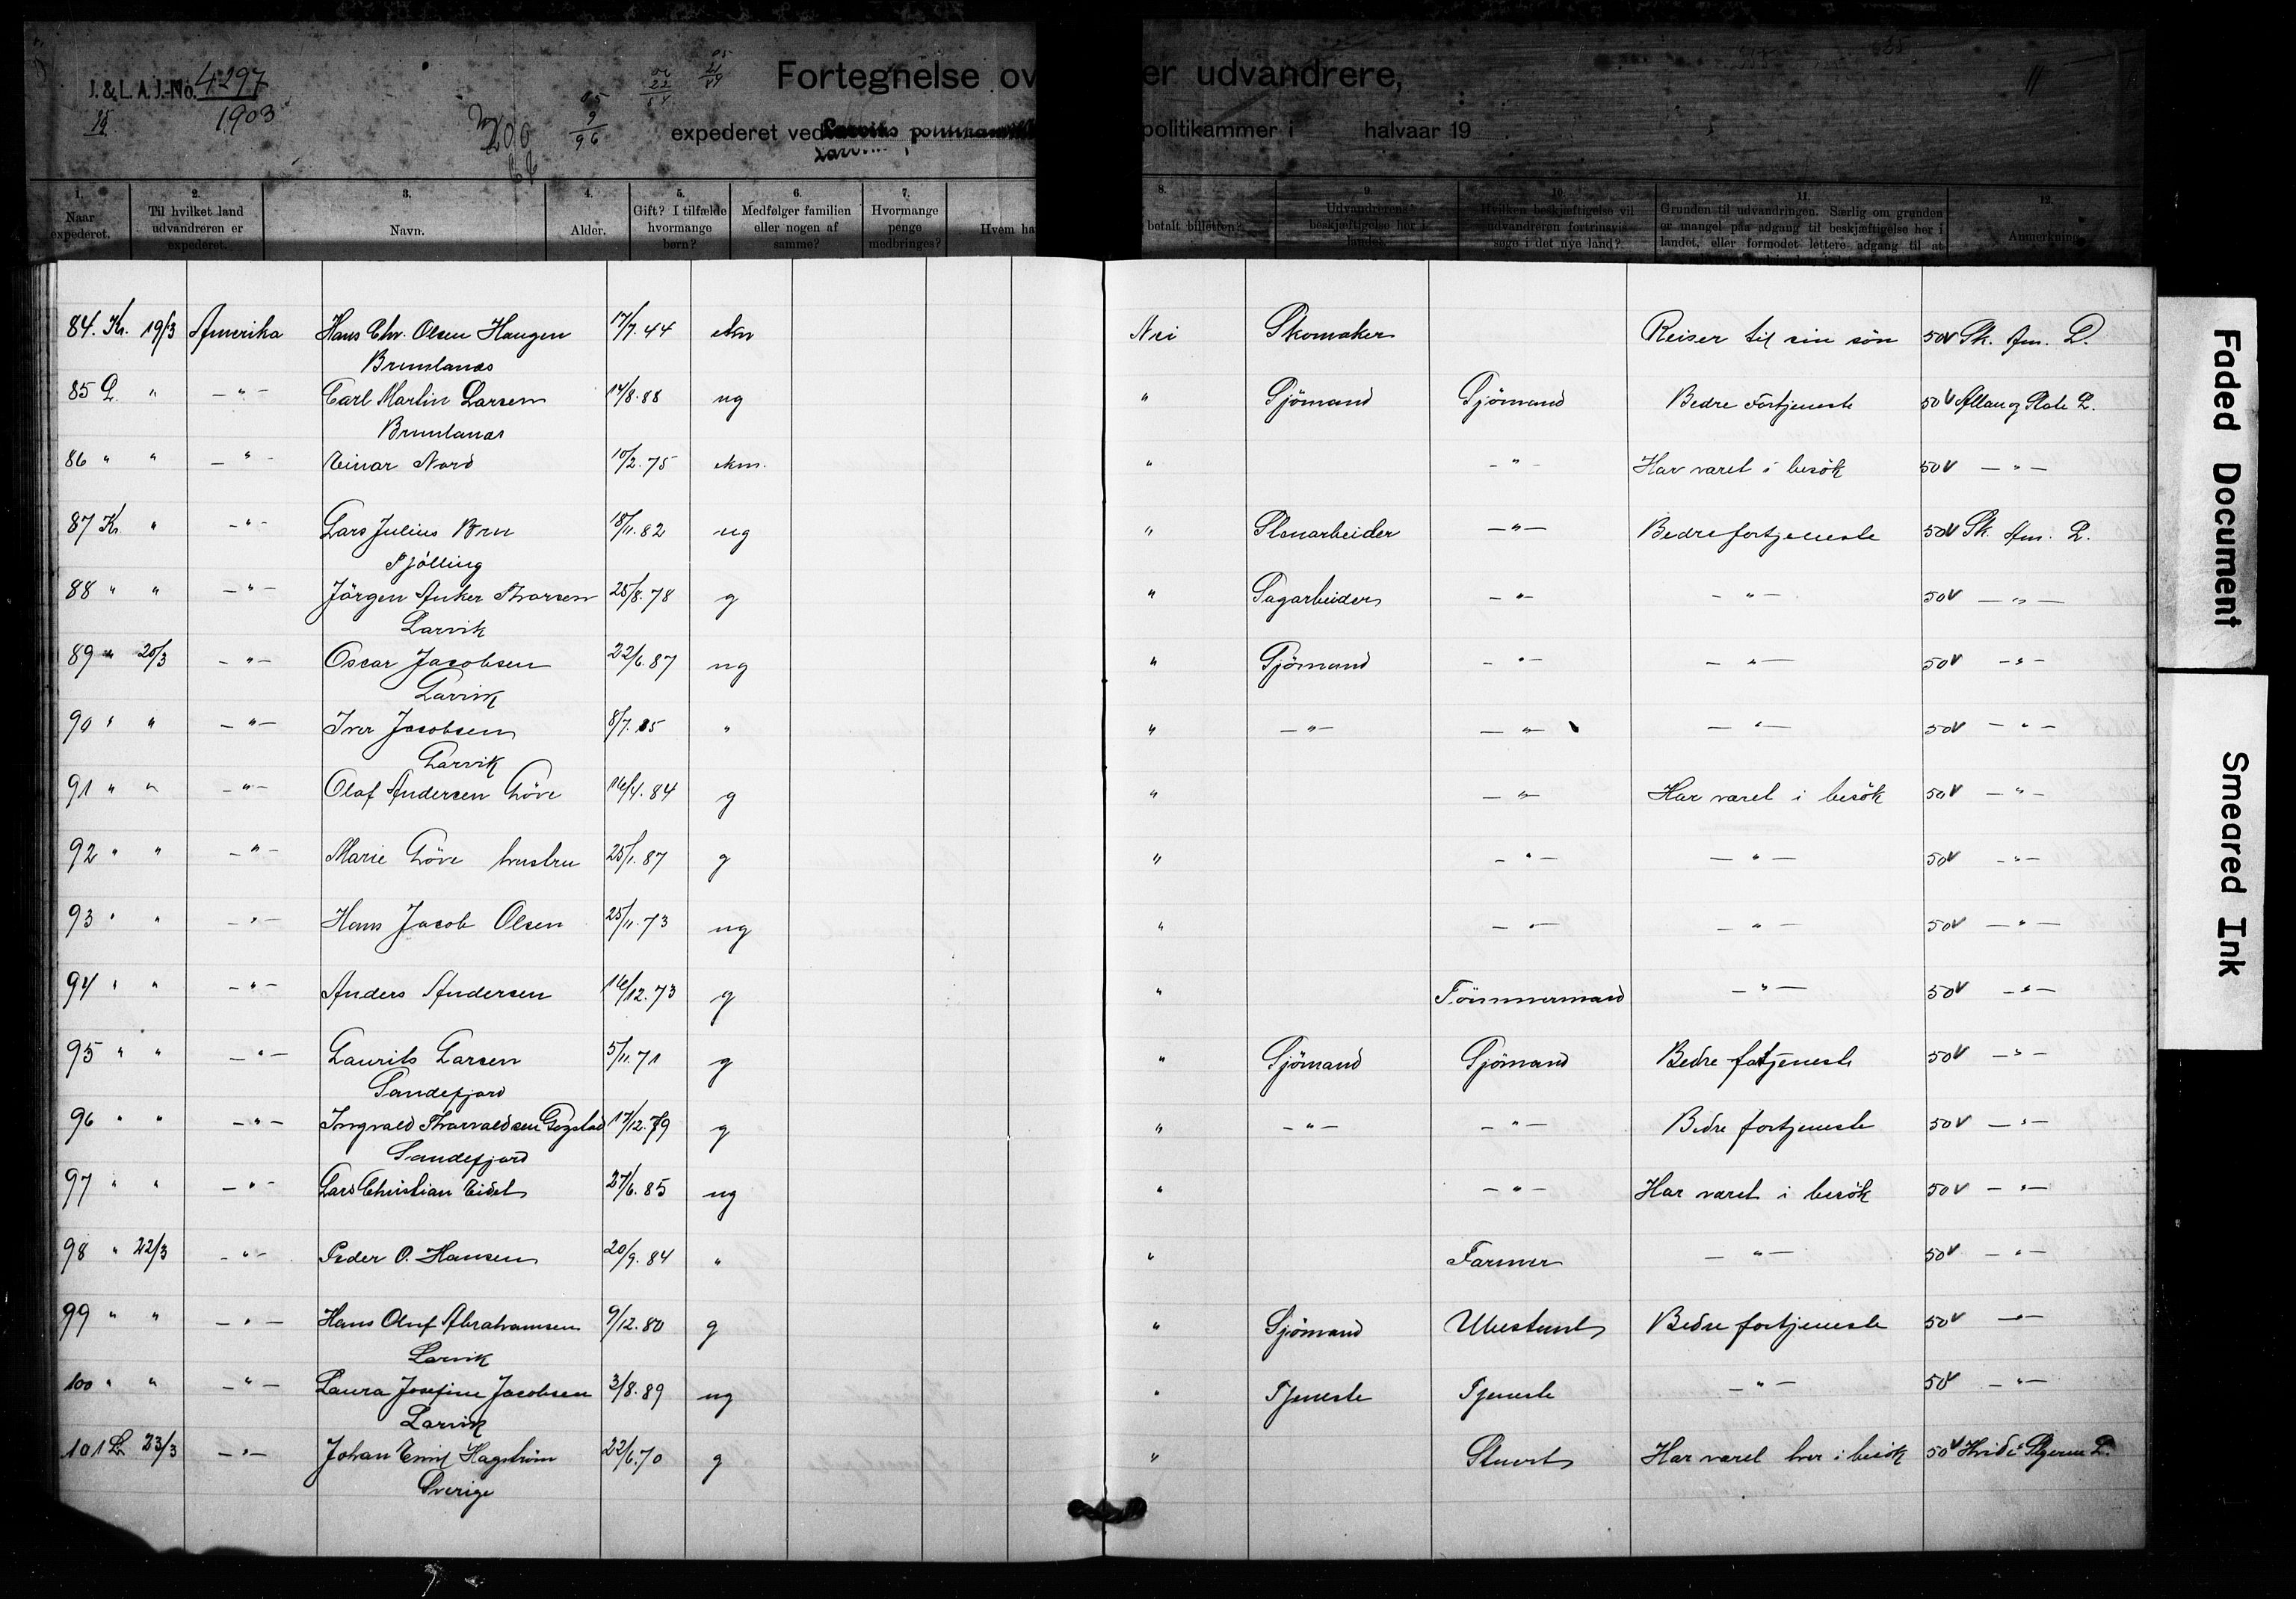 J. & L. A. J.-No. 4297
1903
Fortegnelse ov er udvandrere,
expederet ved politikammer i halvaar 19
1. Naar expederet.
2. Til hvilket land udvandreren er expederet.
3. Navn.
4. Alder.
5. Gift? I tilfælde hvormange børn?
6. Medfølger familien eller nogen af samme?
7. Hvormange penge medbringes?
Hvem ha
8. betalt billetten?
9. Udvandrerens beskjæftigelse her i landet.
10. Hvilken beskjæftigelse vil udvandreren fortrinsvis søge i det nye land?
11. Grunden til udvandringen. Særlig om grunden er mangel paa adgang til beskjæftigelse her i landet, eller formodet lettere adgang til at
12. Anmerkning
84. Kr. 19/3 Amerika Hans Chr. Olsen Haugen 17/7.44 ekm Nei Skomaker Reiser til sin sön 50 V Sk. Am. L.
Brunlanæs
85 L. " — " — Carl Martin Larsen 14/8.88 ug " Sjömand Sjömand Bedre Fortjeneste 50 V Allan og State L.
Brunlanæs
86 " " — " — Einar Nord 10/2.75 ekm. " — " — Har været i besök 50 V — " —
87 Kr " — " — Lars Julius Bru 18/11.82 ug " Stenarbeider — " — Bedre fortjeneste 50 V Sk. Am. L.
Tjölling
88 " " — " — Jörgen Anker Thorsen 25/8.78 g " Sagarbeider — " — — " — 50 V — " —
Larvik
89 " 20/3 — " — Oscar Jacobsen 22/6.87 ug " Sjömand — " — — " — 50 V — " —
Larvik
90 " " — " — Iver Jacobsen 8/7.85 " " — " — — " — — " — 50 V — " —
Larvik
91 " " — " — Olaf Andersen Göve 16/4.84 g " — " — Har været i besök 50 V — " —
92 " " — " — Marie Göve hustru 25/1.87 g " — " — — " — 50 V — " —
93 " " — " — Hans Jacob Olsen 25/11.73 ug " — " — — " — 50 V — " —
94 " " — " — Anders Andersen 16/12.73 g " Tömmermand — " — 50 V — " —
95 " " — " — Laurits Larsen 5/11.71 g " Sjömand Sjömand Bedre fortjeneste 50 V — " —
Sandefjord
96 " " — " — Ingvald Thorvaldsen Gogstad 17/12.79 g " — " — — " — Bedre fortjeneste 50 V — " —
Sandefjord
97 " " — " — Lars Christian Eidet 27/6.85 ug " — " — Har været i besök 50 V — " —
98 " 22/3 — " — Peder O. Hansen 20/9.84 " " Farmer — " — 50 V — " —
99 " " — " — Hans Oluf Abrahamsen 9/12.80 g " Sjömand Ubestemt Bedre fortjeneste 50 V — " —
Larvik
100 " " — " — Laura Josefine Jacobsen 3/8.89 ug " Tjeneste Tjeneste — " — 50 V — " —
Larvik
101 L. 23/3 — " — Johan Emil Hagström 22/6.70 g " Stuert Har været her i besök 50 V Hvide Stjerne L.
Sverige
Faded Document
Smeared Ink